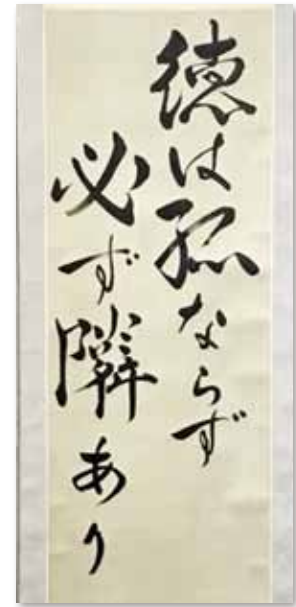 徳は孤ならず
必ず隣あり